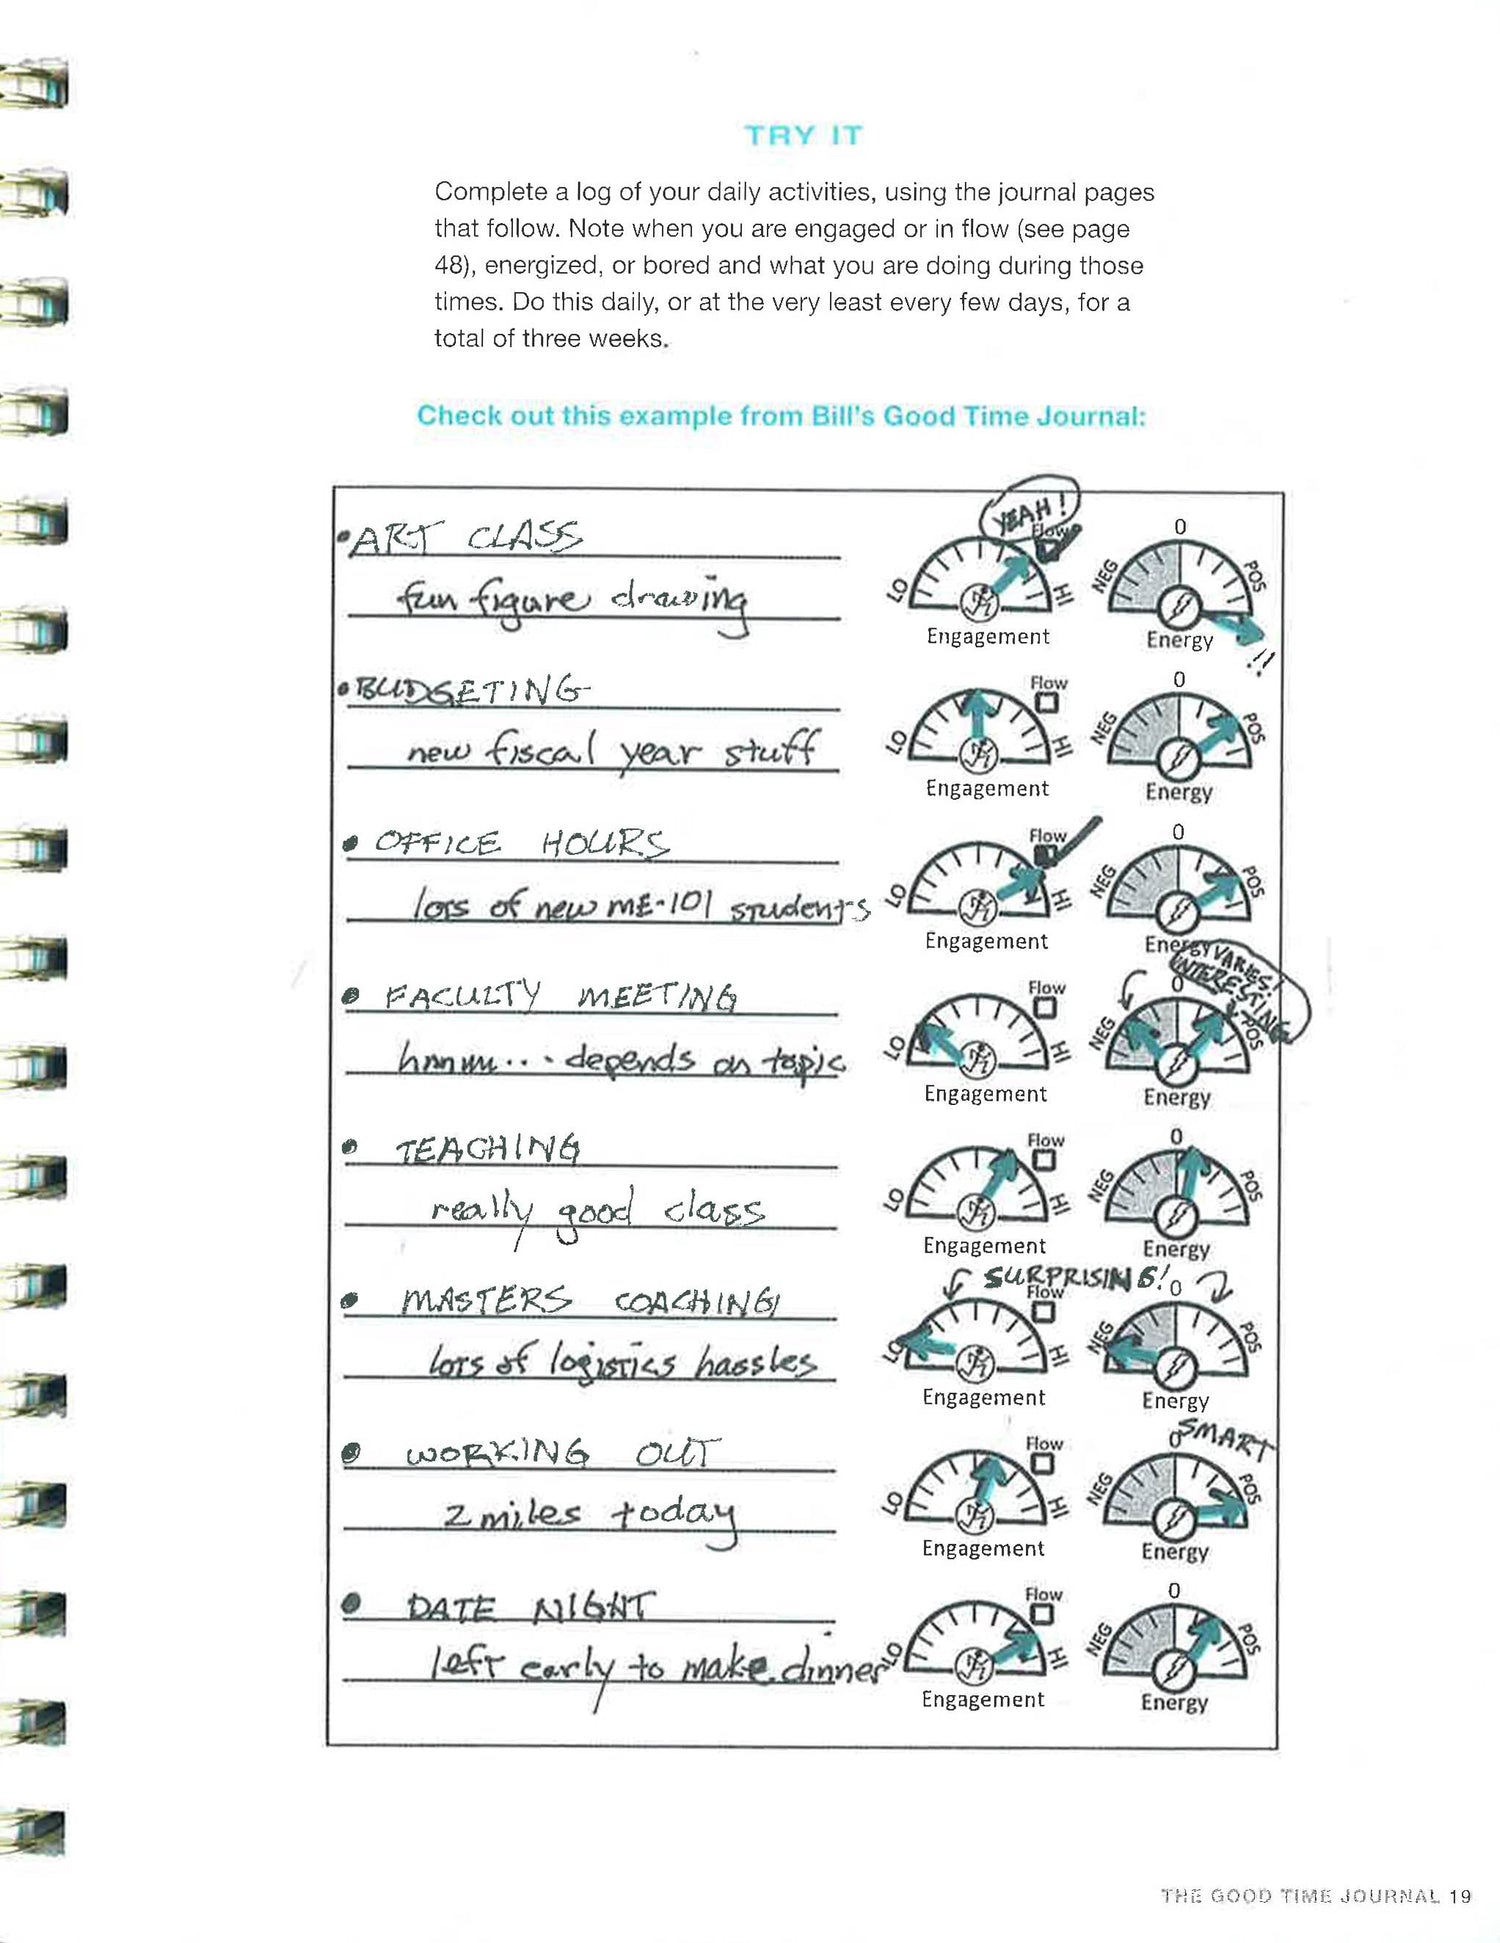 TRY IT
Complete a log of your daily activities, using the journal pages
that follow. Note when you are engaged or in flow (see page
48), energized, or bored and what you are doing during those
times. Do this daily, or at the very least every few days, for a
total of three weeks.
Check out this example from Bill's Good Time Journal:
• ART CLASS
fun figure drawing
YEAH!
Flow
LO
HI
Engagement
0
NEG
POS
Energy
!!
• BUDGETING
new fiscal year stuff
Flow
LO
HI
Engagement
0
NEG
POS
Energy
• OFFICE HOURS
lots of new ME-101 students
Flow
LO
HI
Engagement
0
NEG
POS
Energy
• FACULTY MEETING
hmmm... depends on topic
Flow
LO
HI
Engagement
VARIES!
INTERESTING
0
NEG
POS
Energy
• TEACHING
really good class
Flow
LO
HI
Engagement
0
NEG
POS
Energy
• MASTERS COACHING
lots of logistics hassles
SURPRISING!
Flow
LO
HI
Engagement
0
NEG
POS
Energy
• WORKING OUT
2 miles today
Flow
LO
HI
Engagement
SMART
0
NEG
POS
Energy
• DATE NIGHT
left early to make dinner
Flow
LO
HI
Engagement
0
NEG
POS
Energy
THE GOOD TIME JOURNAL 19